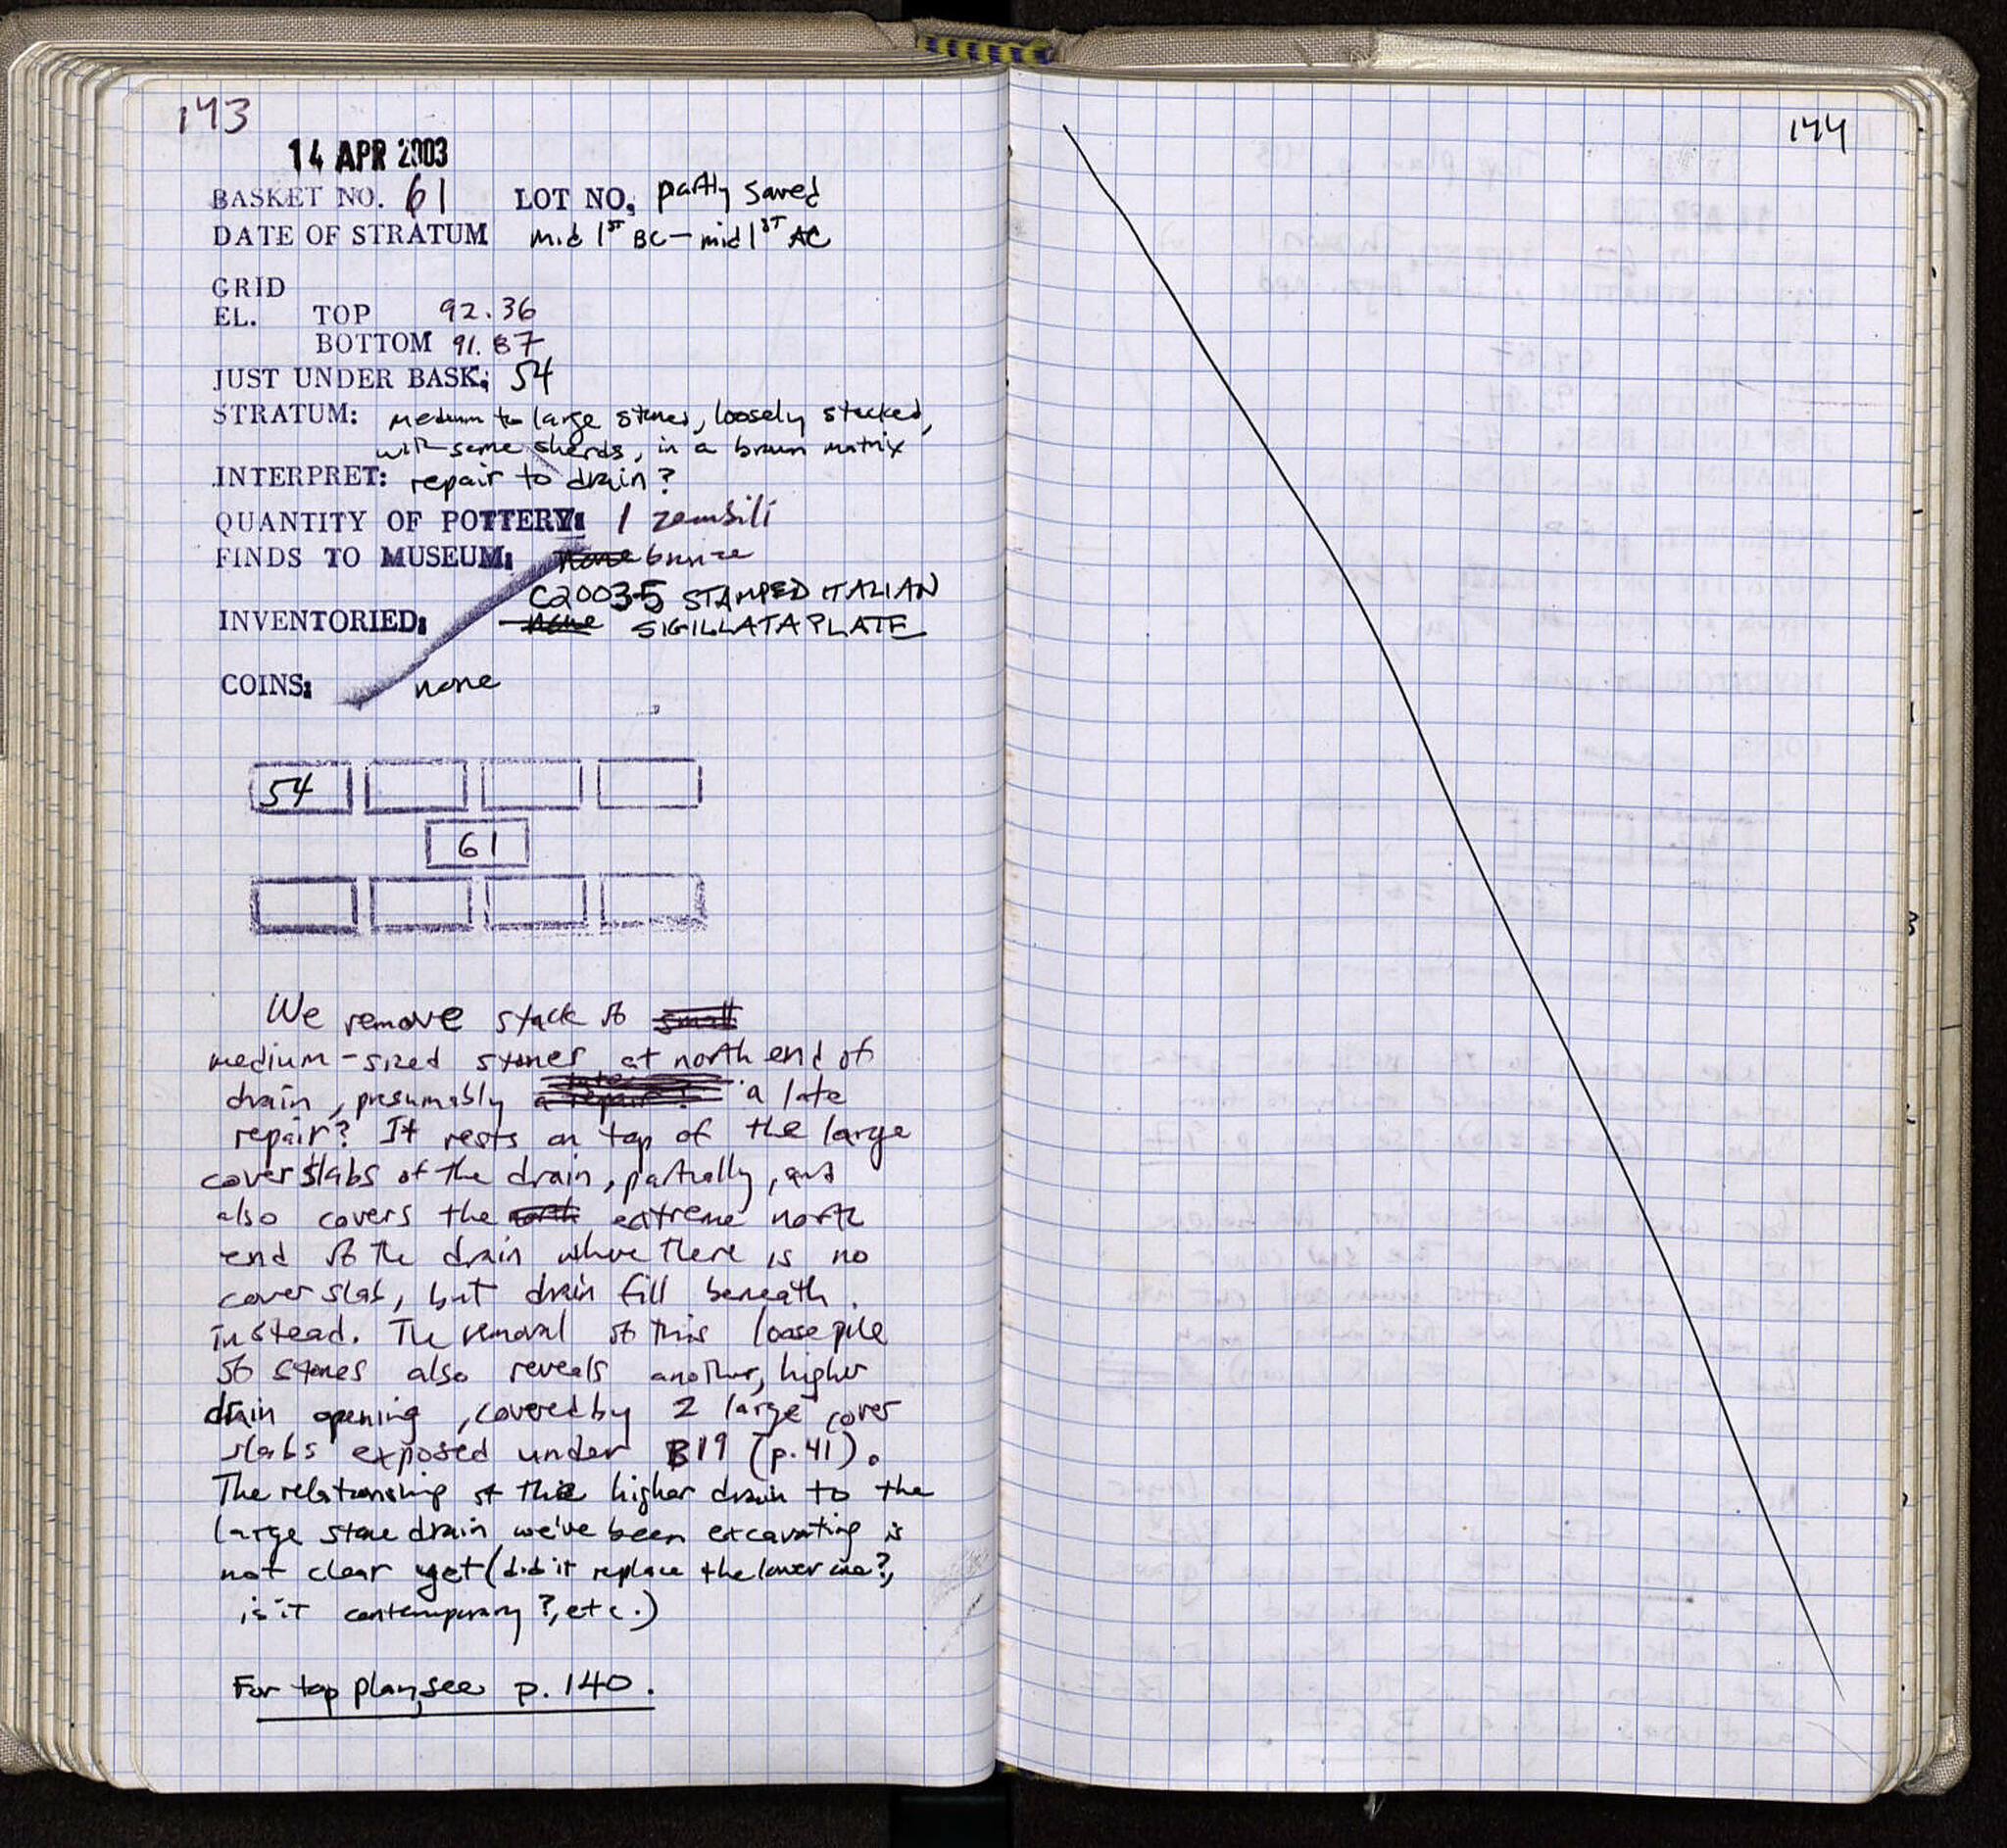 143
14 APR 2003
BASKET NO. 61 LOT NO. partly saved
DATE OF STRATUM mid 1ST BC - mid 1ST AC
GRID
EL. TOP 92.36
BOTTOM 91.87
JUST UNDER BASK: 54
STRATUM: medium to large stones, loosely stacked,
with some sherds, in a brown matrix
INTERPRET: repair to drain?
QUANTITY OF POTTERY: 1 zembili
FINDS TO MUSEUM: none bronze
C2003-5 STAMPED ITALIAN
INVENTORIED: none SIGILLATA PLATE
COINS: none
54
61
We remove stack of small
medium-sized stones at north end of
drain, presumably a repair? a late
repair? It rests on top of the large
cover slabs of the drain, partially, and
also covers the north extreme north
end of the drain where there is no
cover slab, but drain fill beneath
instead. The removal of this loose pile
of stones also reveals another, higher
drain opening, covered by 2 large cover
slabs exposed under B19 (p.41).
The relationship of this higher drain to the
large stone drain we've been excavating is
not clear yet (did it replace the lower one?,
is it contemporary?, etc.)
For top plan, see p. 140.
144